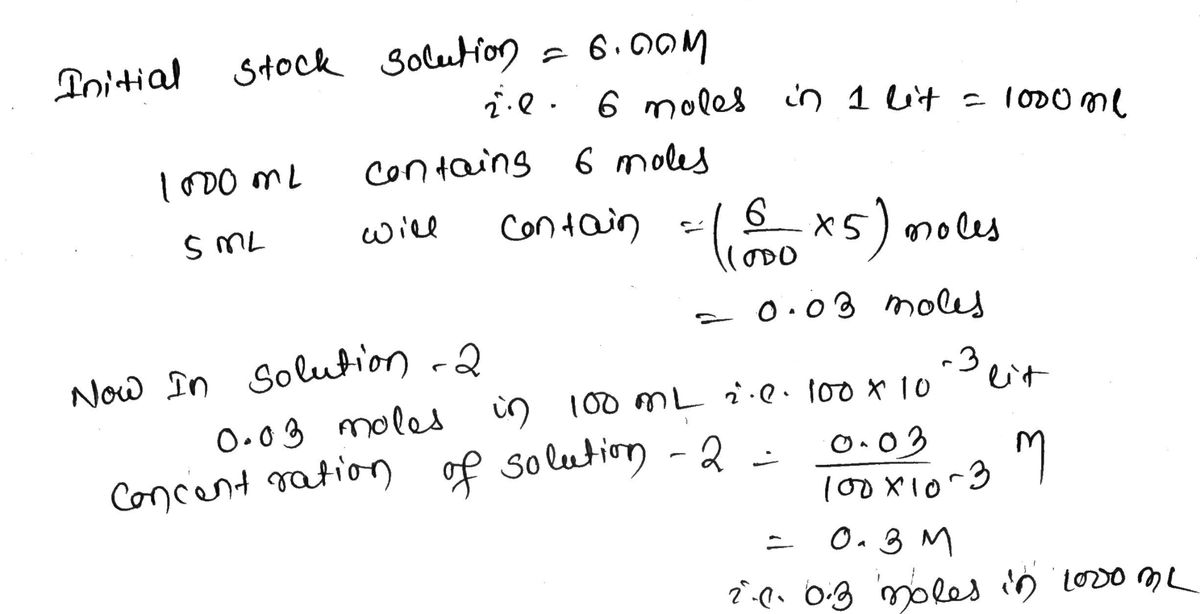 Initial stock solution = 6.00M
i.e. 6 moles in 1 lit = 1000 ml
1000 mL contains 6 moles
5 mL will contain = (6/1000 × 5) moles
= 0.03 moles
Now In solution - 2
0.03 moles in 100 mL i.e. 100 × 10^-3 lit
Concentration of solution - 2 = 0.03/(100 × 10^-3) M
= 0.3 M
i.e. 0.3 moles in 1000 mL